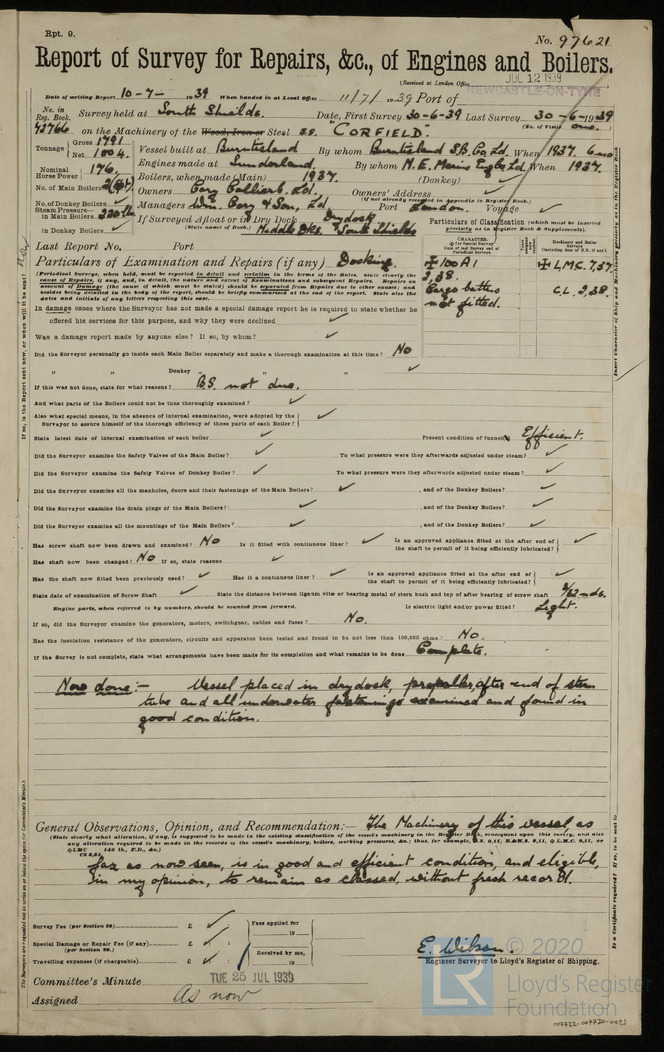 Rpt. 9.
No. 97621
Report of Survey for Repairs, &c., of Engines and Boilers.
(Received at London Office
JUL 12 1939
Date of writing Report 10-7-1939 When handed in at Local Office 11/7/1939 Port of NEWCASTLE-ON-TYNE
No. in Reg. Book. Survey held at South Shields. Date, First Survey 30-6-39 Last Survey 30-6-1939
(No. of Visits one.)
42766 on the Machinery of the Wood, Iron or Steel S.S. CORFIELD.
Tonnage Gross 1791 Vessel built at Burntisland By whom Burntisland S.B. Co. Ld. When 1937. 6 mo
Net 1004. Engines made at Sunderland, By whom N.E. Marine Eng. Co. Ld When 1937.
Nominal Horse Power 176. Boilers, when made (Main) 1937. (Donkey) ✓
No. of Main Boilers Owners Cory Colliers Ld. Owners' Address ✓
(if not already recorded in Appendix to Register Book.)
No. of Donkey Boilers ✓ Managers Wm. Cory & Son, Ld Port London. Voyage ✓
Steam Pressure in Main Boilers 220 lb If Surveyed Afloat or in Dry Dock Drydock
in Donkey Boilers ✓ (State name of Dock.) Middle Dks. South Shields
Particulars of Classification (which must be inserted precisely as in Register Book & Supplements).
Last Report No. Port
Particulars of Examination and Repairs (if any) Docking.
CHARACTER.
Machinery and Boiler Surveys
✠ 100 A1 ✠ L.M.C. 7.37.
2.38. C.L. 2.38.
Cargo battens not fitted.
(Periodical Surveys, when held, must be reported in detail and seriatim in the terms of the Rules. State clearly the cause of Repairs, if any, and, in detail, the nature and extent of Examinations and subsequent Repairs. Repairs on account of Damage (the cause of which must be stated) should be separated from Repairs due to other causes; and besides being detailed in the body of the report, should be briefly summarised at the end of the report. State also the dates and initials of any letters respecting this case.)
In damage cases where the Surveyor has not made a special damage report he is required to state whether he
offered his services for this purpose, and why they were declined ✓
Was a damage report made by anyone else? If so, by whom? ✓
Did the Surveyor personally go inside each Main Boiler separately and make a thorough examination at this time? No
" " Donkey " " " ✓
If this was not done, state for what reasons? B.S. not due.
And what parts of the Boilers could not be thoroughly examined? ✓
Also what special means, in the absence of internal examination, were adopted by the
Surveyor to assure himself of the thorough efficiency of those parts of each Boiler? ✓
State latest date of internal examination of each boiler ✓ Present condition of funnel Efficient.
Did the Surveyor examine the Safety Valves of the Main Boiler? ✓ To what pressure were they afterwards adjusted under steam? ✓
Did the Surveyor examine the Safety Valves of Donkey Boiler? ✓ To what pressure were they afterwards adjusted under steam? ✓
Did the Surveyor examine all the manholes, doors and their fastenings of the Main Boilers? ✓, and of the Donkey Boilers? ✓
Did the Surveyor examine the drain plugs of the Main Boilers? ✓, and of the Donkey Boilers? ✓
Did the Surveyor examine all the mountings of the Main Boilers? ✓, and of the Donkey Boilers? ✓
Has screw shaft now been drawn and examined? No Is it fitted with continuous liner? ✓ Is an approved appliance fitted at the after end of the shaft to permit of it being efficiently lubricated? ✓
Has shaft now been changed? No If so, state reasons ✓
Has the shaft now fitted been previously used? ✓ Has it a continuous liner? ✓ Is an approved appliance fitted at the after end of the shaft to permit of it being efficiently lubricated? ✓
State date of examination of Screw Shaft ✓ State the distance between lignum vitæ or bearing metal of stern bush and top of after bearing of screw shaft 3/32
Engine parts, when referred to by numbers, should be counted from forward. Is electric light and/or power fitted? Light.
If so, did the Surveyor examine the generators, motors, switchgear, cables and fuses? No.
Has the insulation resistance of the generators, circuits and apparatus been tested and found to be not less than 100,000 ohms? No.
If the Survey is not complete, state what arrangements have been made for its completion and what remains to be done Complete.
Now done:- Vessel placed in drydock, propeller, after end of stern
tube and all underwater fastenings examined and found in
good condition.
General Observations, Opinion, and Recommendation:- The Machinery of this vessel, as
(State clearly what alteration, if any, is suggested to be made in the existing classification of the vessel's machinery in the Register Book, consequent upon this survey, and also any alteration required to be made in the records of the vessel's machinery, boilers, working pressures, &c.;
far as now seen, is in good and efficient condition, and eligible,
in my opinion, to remain as classed, without fresh record.
Survey Fee (per Section 29) £ ✓ Fees applied for
19
Special Damage or Repair Fee (if any) £ ✓
(per Section 29.)
Travelling expenses (if chargeable) £ ✓ Received by me,
19
E. Wilson.
Engineer Surveyor to Lloyd's Register of Shipping.
Committee's Minute TUE 25 JUL 1939
Assigned As now
© 2020
LR
Lloyd's Register
Foundation
007722-007730-0023